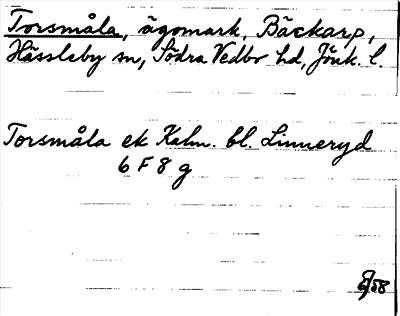 Torsmåla, ägomark, Bäckarp,
Hässleby sn, Södra Vedbo hd, Jönk. l.
Torsmåla ek Kalm. bl. Linneryd
6 F 8 g